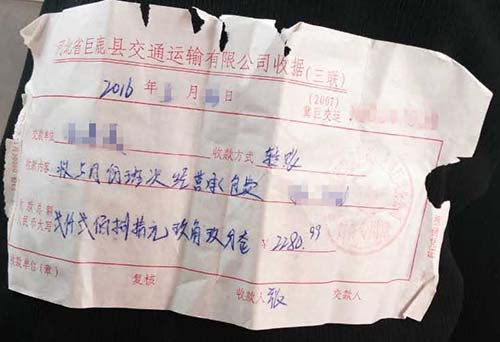 河北省巨鹿县交通运输有限公司收据(三联)
2016 年 月 日
(2007)
冀巨交运:
交款单位 收款方式 转账
收款内容 收上月份班次经营承包款
收款总额
人民币大写 贰仟贰佰捌拾元玖角玖分 ¥ 2280.99
收款单位(章) 复核 收款人 张 交款人